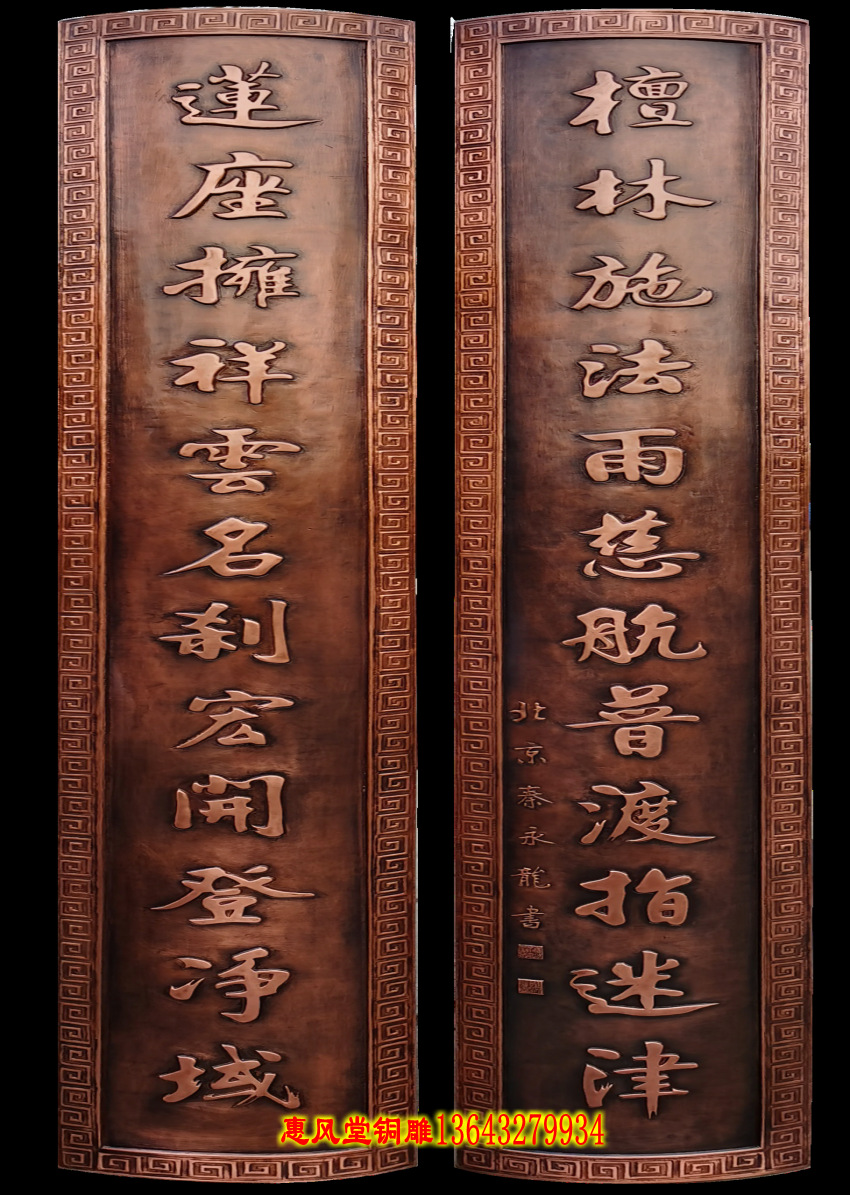 蓮座擁祥雲名刹宏開登净域
檀林施法雨慈航普渡指迷津
北京秦永龍書
惠风堂铜雕13643279934